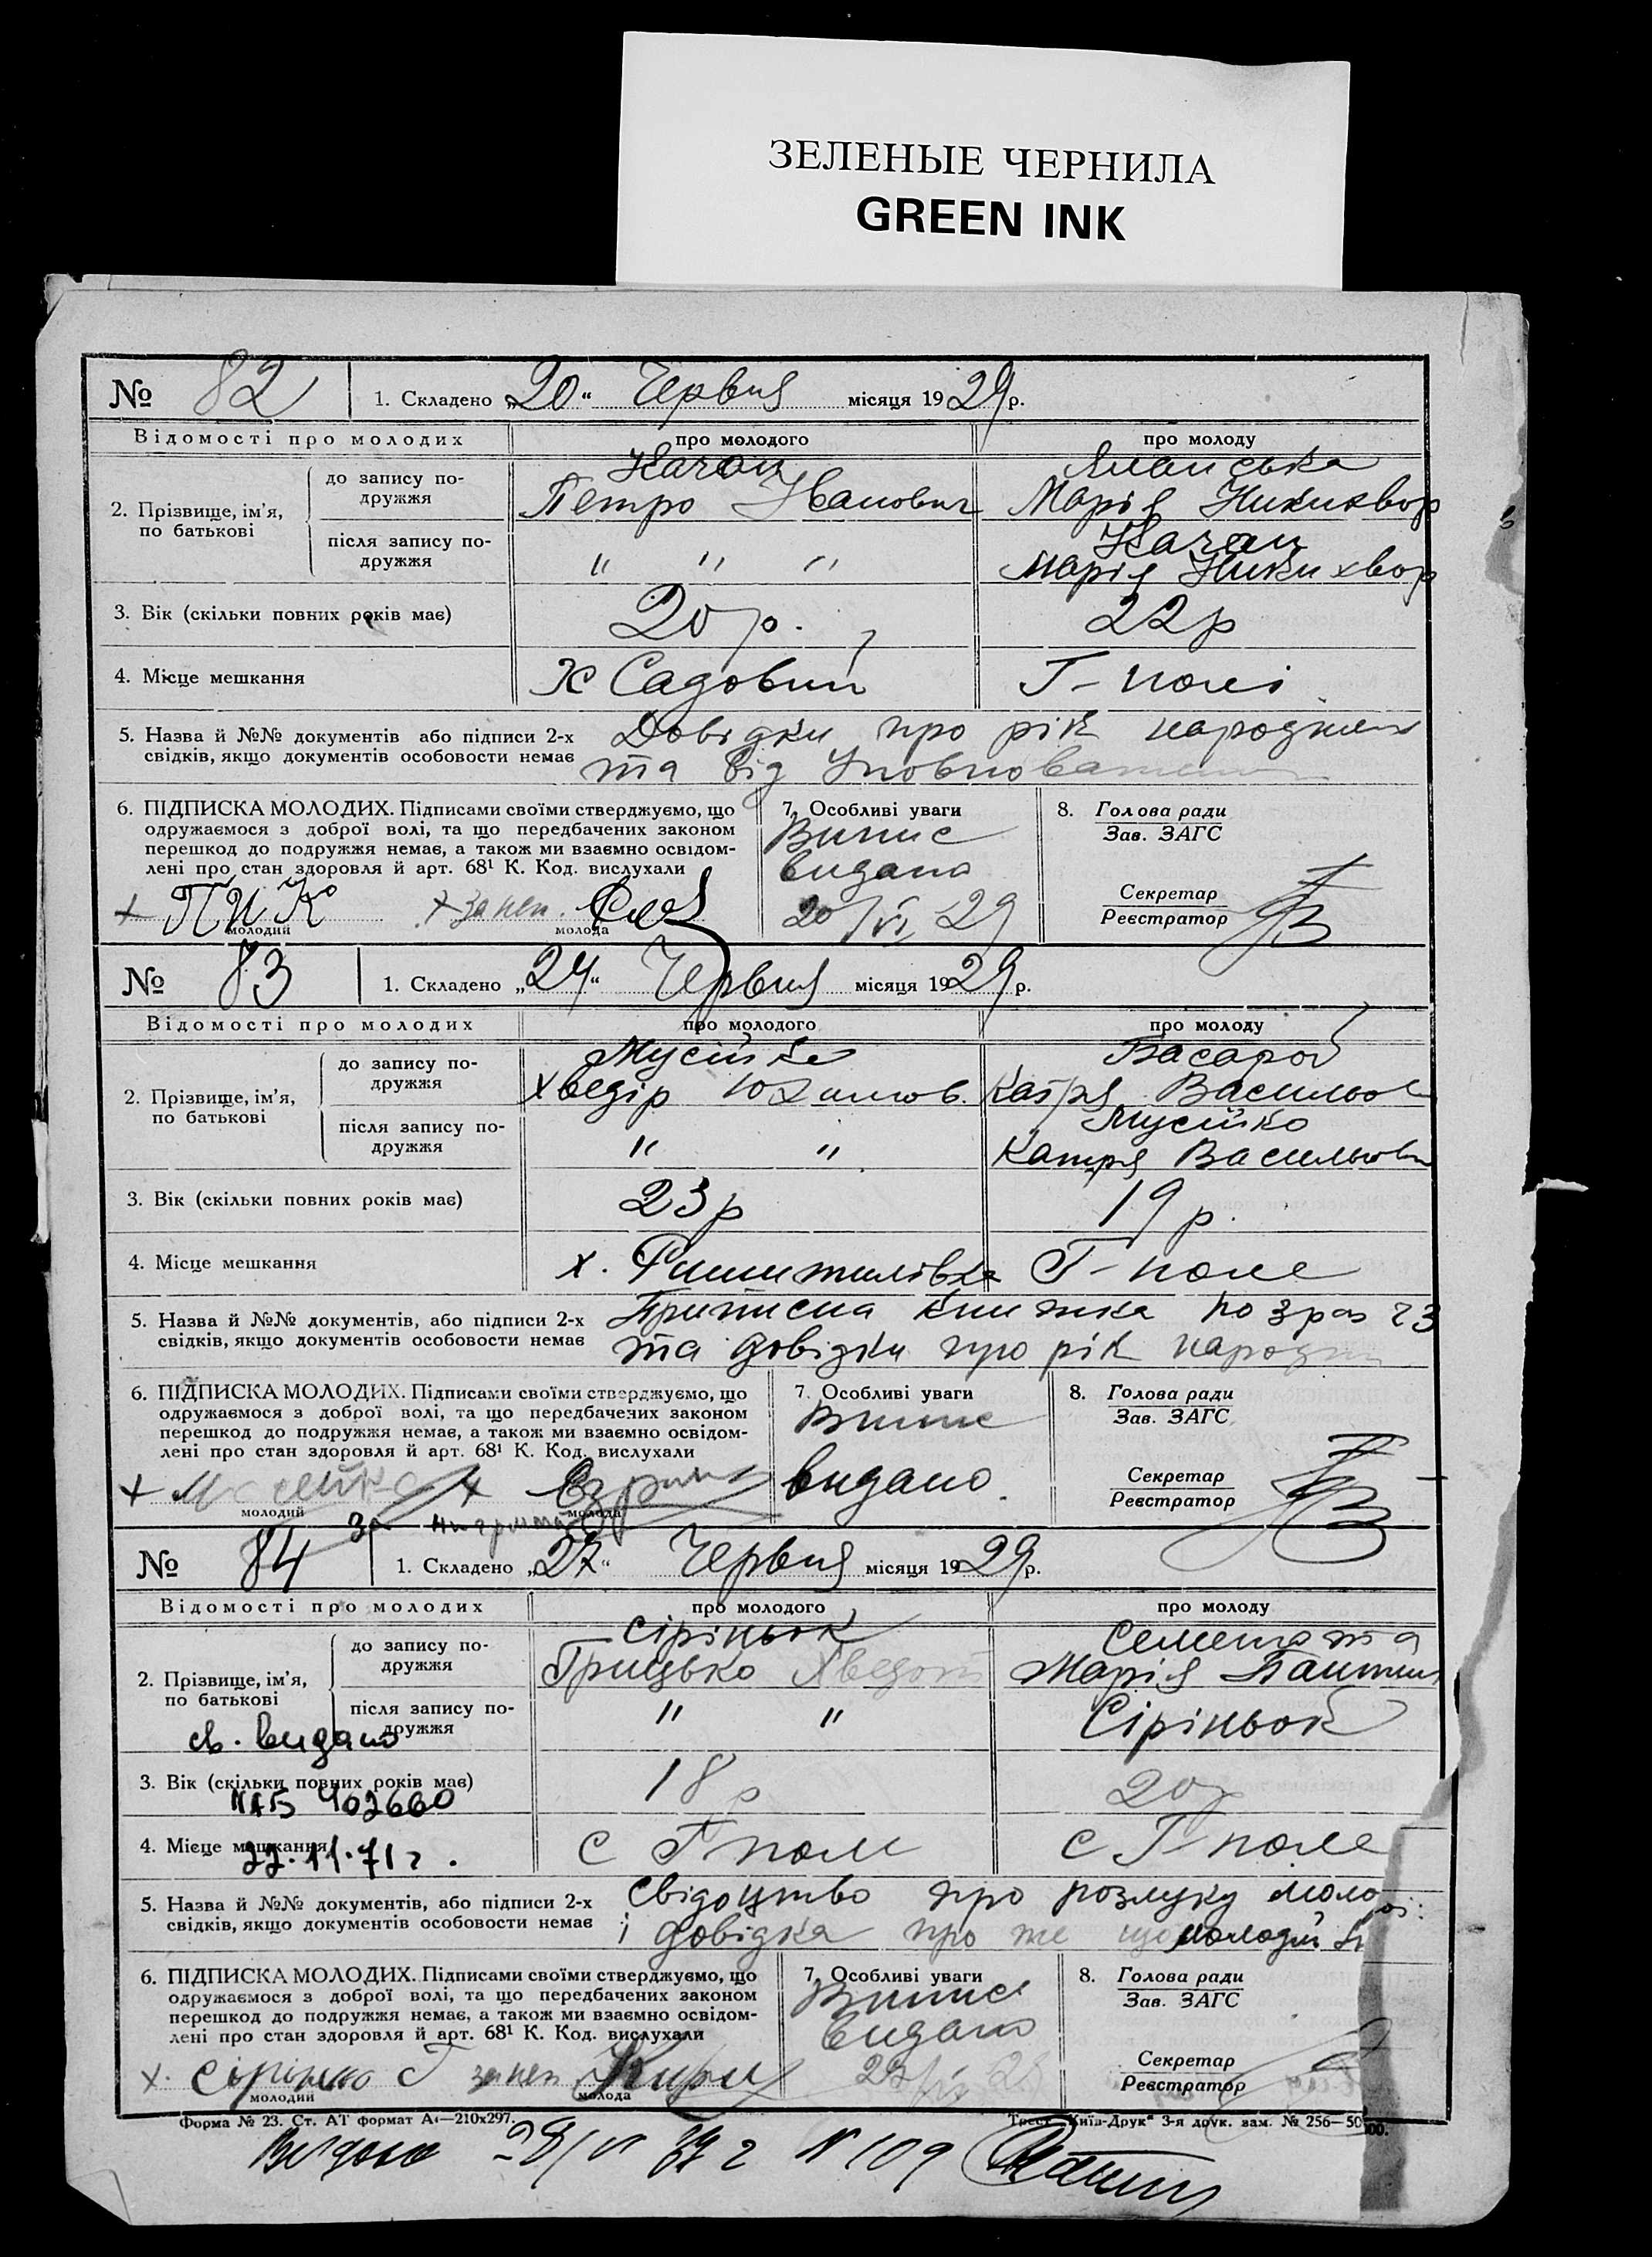 ЗЕЛЕНЫЕ ЧЕРНИЛА
GREEN INK
№ 82 1. Складено „20“ Червня місяця 1929 р.
Відомості про молодих про молодого про молоду
2. Прізвище, ім’я, по батькові
до запису по-
дружжя
Качан
Петро Іванович
Марія Никихвор
після запису по-
дружжя
" " "
Качан
Марія Никихвор
3. Вік (скільки повних років має) 20 р. 22 р
4. Місце мешкання Х Садовий Г-полі
5. Назва й №№ документів або підписи 2-х
свідків, якщо документів особовости немає
Довідки про рік народжен
та від
6. ПІДПИСКА МОЛОДИХ. Підписами своїми стверджуємо, що
одружаємося з доброї волі, та що передбачених законом
перешкод до подружжя немає, а також ми взаємно освідом-
лені про стан здоровля й арт. 68¹ К. Код. вислухали
+ П И К + за неп.
молодий молода
7. Особливі уваги
Випис
видано
20/VI 29
8. Голова ради
Зав. ЗАГС
Секретар
Реєстратор
№ 83 1. Складено „24“ Червня місяця 1929 р.
Відомості про молодих про молодого про молоду
2. Прізвище, ім’я,
по батькові
до запису по-
дружжя
Мусійко
Хведір Юхимов.
Басараб
Катря Васильов
після запису по-
дружжя
" "
Мусійко
Катря Васильовн
3. Вік (скільки повних років має) 23 р 19 р.
4. Місце мешкання х. Г-поле
5. Назва й №№ документів, або підписи 2-х
свідків, якщо документів особовости немає
Приписна книжка по зраз 23
та довідки про рік народж
6. ПІДПИСКА МОЛОДИХ. Підписами своїми стверджуємо, що
одружаємося з доброї волі, та що передбачених законом
перешкод до подружжя немає, а також ми взаємно освідом-
лені про стан здоровля й арт. 68¹ К. Код. вислухали
+ +
молодий молода
за
7. Особливі уваги
Випис
видано
8. Голова ради
Зав. ЗАГС
Секретар
Реєстратор
№ 84 1. Складено „27“ Червня місяця 1929 р.
Відомості про молодих про молодого про молоду
2. Прізвище, ім’я,
по батькові
до запису по-
дружжя
Сіріньок
Грицько Хведот
Марія
після запису по-
дружжя
" "
Сіріньок
св. видано
3. Вік (скільки повних років має) 18 р 20 р
402660
4. Місце мешкання с Г поле с Г-поле
22.11.71 г.
5. Назва й №№ документів, або підписи 2-х
свідків, якщо документів особовости немає
Свідоцтво про розлуку молодої
і довідка про те що молодий
6. ПІДПИСКА МОЛОДИХ. Підписами своїми стверджуємо, що
одружаємося з доброї волі, та що передбачених законом
перешкод до подружжя немає, а також ми взаємно освідом-
лені про стан здоровля й арт. 68¹ К. Код. вислухали
х. Г за неп
молодий молода
7. Особливі уваги
Випис
видано
8. Голова ради
Зав. ЗАГС
Секретар
Реєстратор
Форма № 23. Ст. АТ формат А4—210x297. Трест „Київ-Друк“ 3-я друк. зам. № 256—50000.
Видано 28/VI г N 109